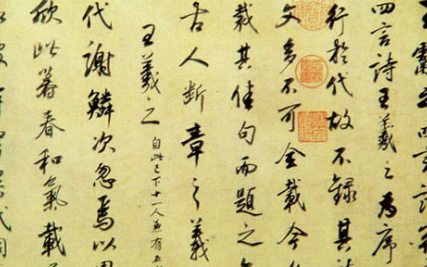 之四言詩
四言詩王羲之為序
行於代故不錄其
文多不可全載今
裁其佳句而題之
古人斷章之義
王羲之 自此已下十一人兼有五
代謝鱗次忽焉以周
欣此暮春和氣載
代同